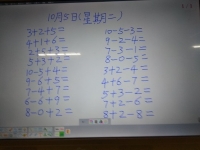 10月5日(星期二)
3+2+5=
4+1+6=
5+3+2=
10-5+4=
9-6+5=
7-4+7=
6-6+9=
8-0+2=
10-5-3=
9-2-4=
7-3-1=
8-0-5=
3+2-4=
4+6-7=
5+3-2=
7+2-6=
8+2-8=